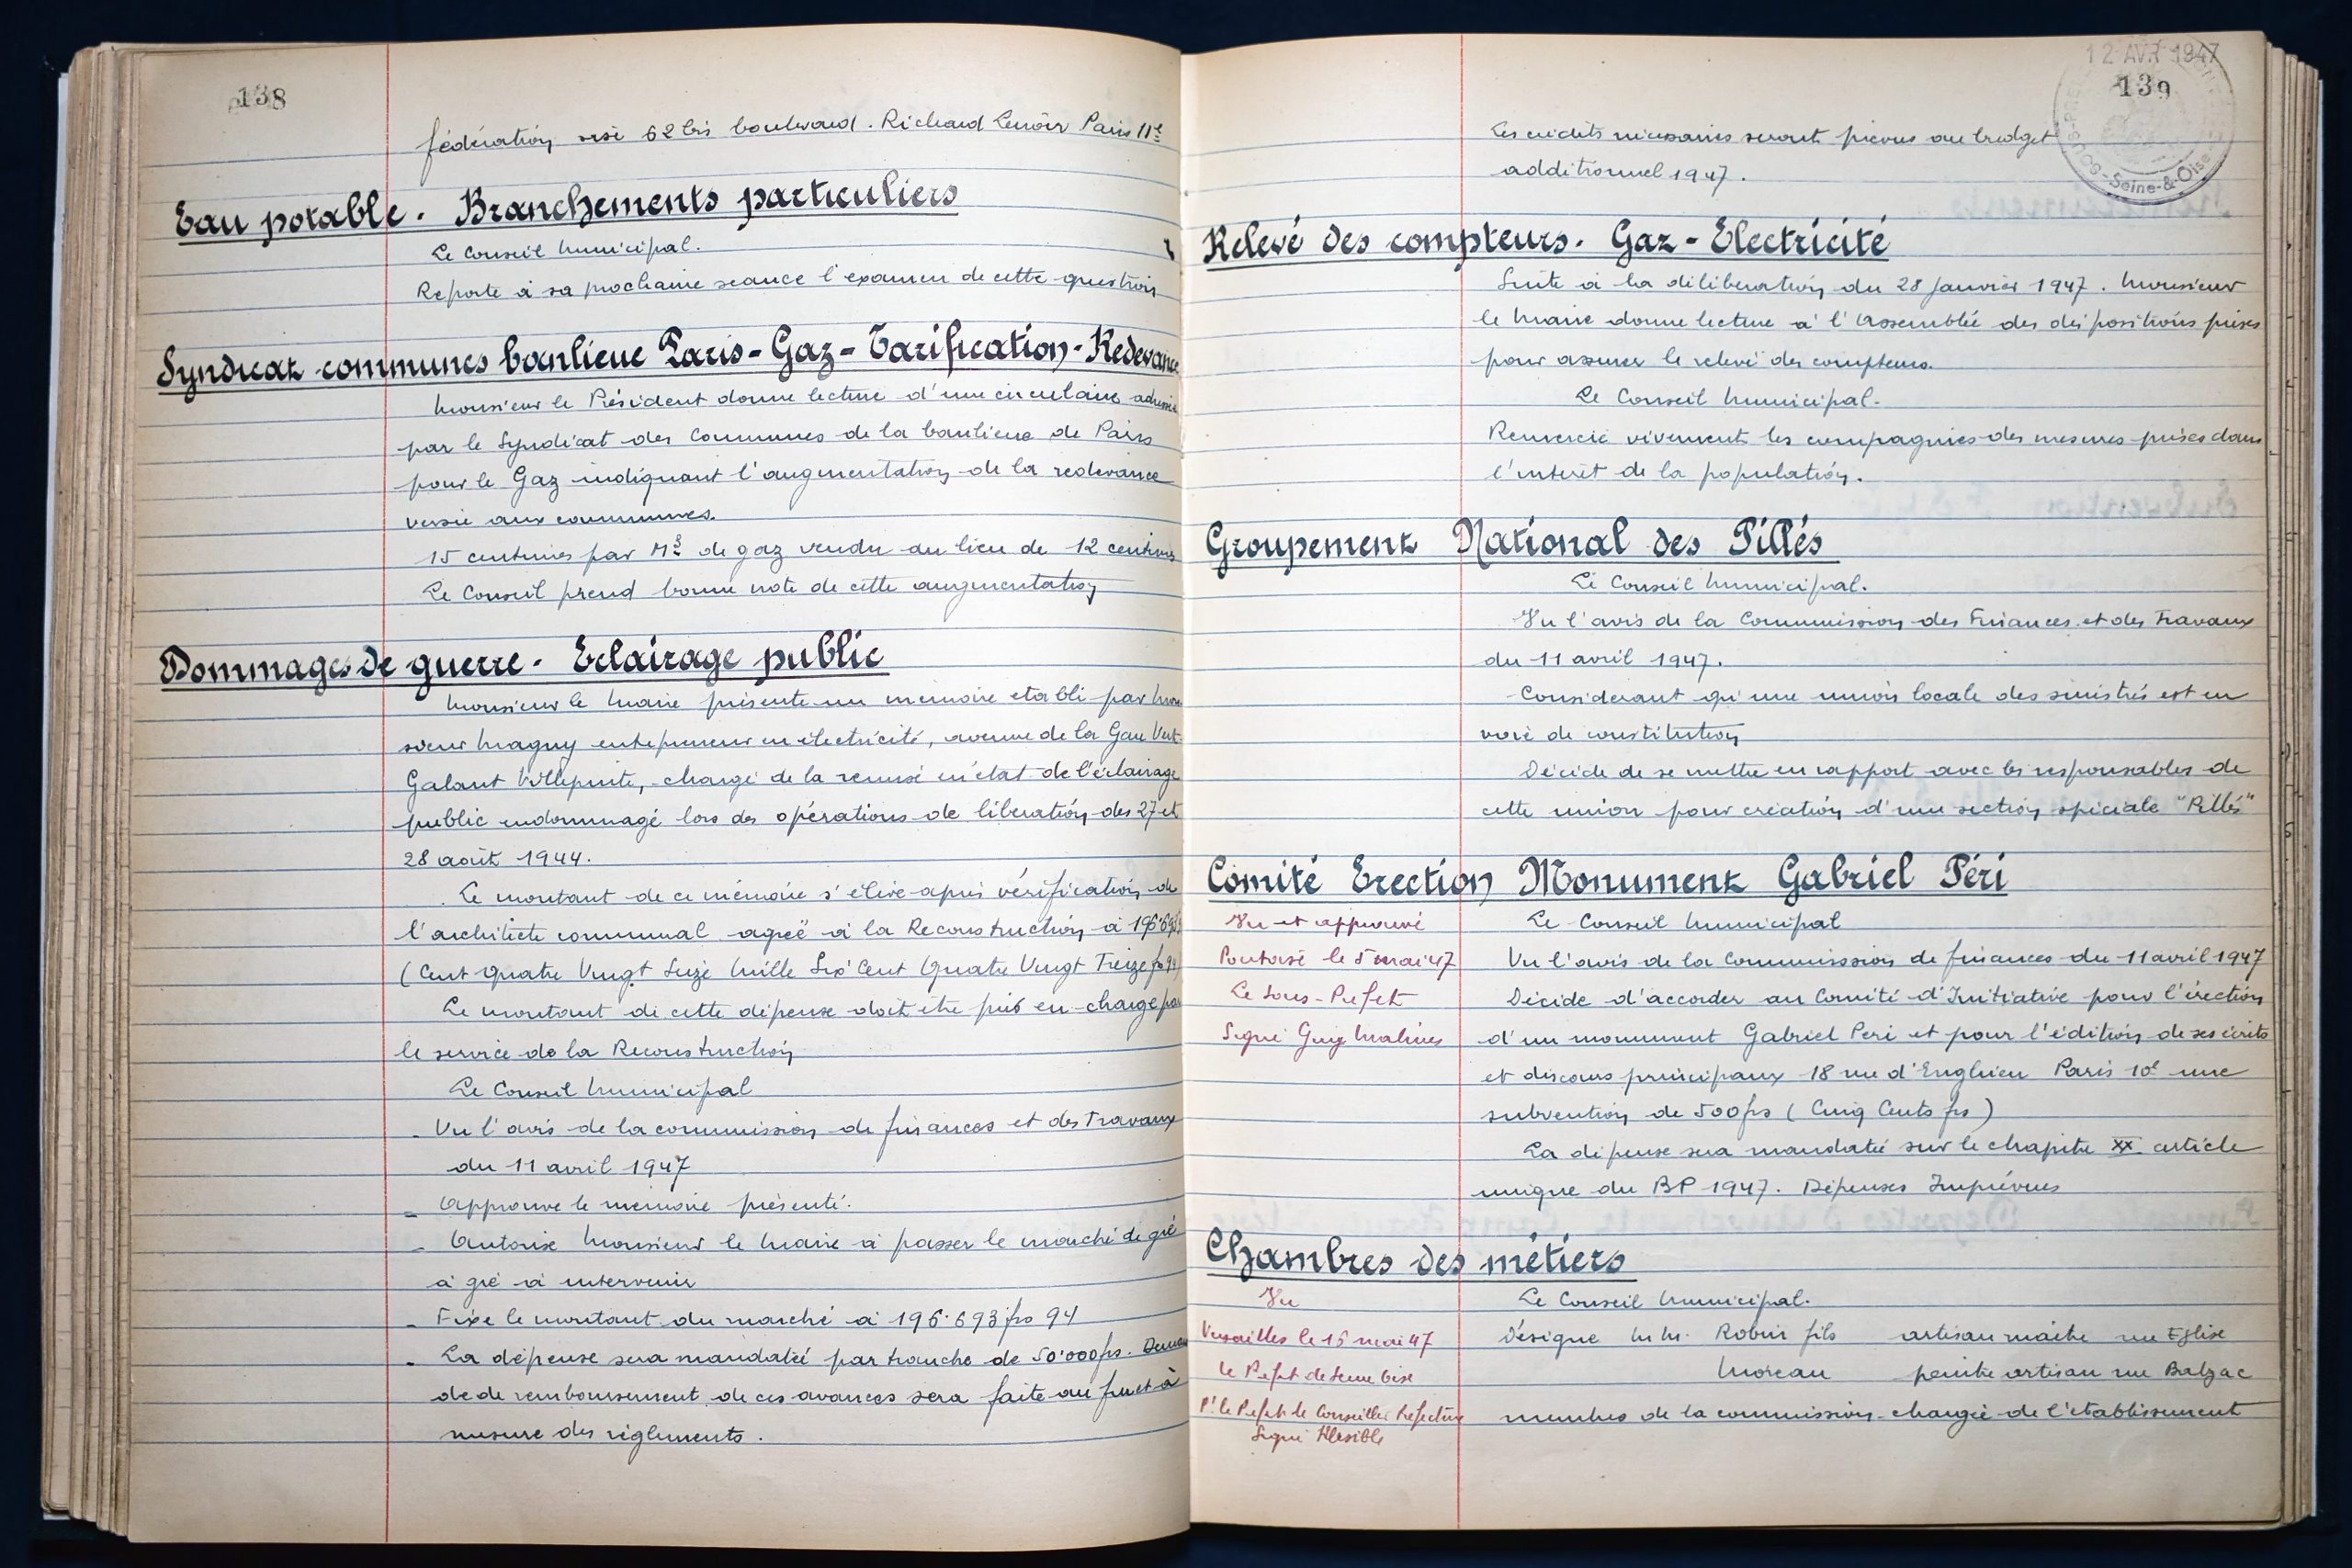 138
fédération sise 62 bis boulevard. Richard Lenoir Paris 11e
Eau potable. Branchements particuliers
Le Conseil Municipal.
Reporte à sa prochaine seance l'examen de cette question
Syndicat communes banlieue Paris - Gaz - Tarification - Redevance
Monsieur le Président donne lecture d'une circulaire adressée
par le Syndicat des Communes de la banlieue de Paris
pour le Gaz indiquant l'augmentation de la redevance
versée aux communes.
15 centimes par M3 de gaz vendu au lieu de 12 centimes
Le Conseil prend bonne note de cette augmentation
Dommages de guerre. Eclairage public
Monsieur le Maire présente un mémoire etabli par Mon
sieur Magny entrepreneur en électricité, avenue de la Gare Vert
Galant Villepinte, chargé de la remise en état de l'éclairage
public endommagé lors des opérations de libération des 27 et
28 août 1944.
Le montant de ce mémoire s'élève après vérification de
l'architecte communal agréé à la Reconstruction à 196.693
(Cent Quatre Vingt Seize Mille Six Cent Quatre Vingt Treize frs 94)
Le montant de cette dépense doit être pris en charge par
le service de la Reconstruction
Le Conseil Municipal
- Vu l'avis de la commission de finances et des Travaux
du 11 avril 1947
- Approuve le mémoire présenté.
- Autorise Monsieur le Maire à passer le marché de gré
à gré à intervenir
- Fixe le montant du marché à 196.693 frs 94
- La dépense sera mandatée par tranche de 50.000 frs. Deman
de de remboursement de ces avances sera faite au fur et à
mesure des règlements.
12 AVR 1947
139
Seine-&-Oise
Les crédits nécessaires seront prévus au budget
additionnel 1947.
Relevé des compteurs. Gaz - Electricité
Suite à la délibération du 28 Janvier 1947. Monsieur
le Maire donne lecture à l'Assemblée des dispositions prises
pour assurer le relevé des compteurs.
Le Conseil Municipal.
Remercie vivement les compagnies des mesures prises dans
l'intérêt de la population.
Groupement National des Pillés
Le Conseil Municipal.
Vu l'avis de la Commission des Finances et des Travaux
du 11 avril 1947.
Considérant qu'une union locale des sinistrés est en
voie de constitution
Décide de se mettre en rapport avec les responsables de
cette union pour création d'une section spéciale "Pillés"
Comité Erection Monument Gabriel Péri
Vu et approuvé
Pontoise le 5 mai 47
Le Sous-Préfet
Signé Guy Malines
Le Conseil Municipal
Vu l'avis de la Commission de finances du 11 avril 1947
Décide d'accorder au Comité d'Initiative pour l'érection
d'un monument Gabriel Peri et pour l'édition de ses écrits
et discours principaux 18 rue d'Enghien Paris 10e une
subvention de 500 frs (Cinq Cents frs)
La dépense sera mandatée sur le chapitre XX article
unique du BP 1947. Dépenses Imprévues
Chambres des métiers
Vu
Versailles le 15 mai 47
le Préfet de Seine Oise
Pr le Préfet le Conseiller Préfecture
Signé Illisible
Le Conseil Municipal.
Désigne M.M. Robin fils artisan maitre rue Eglise
Moreau peintre artisan rue Balzac
membres de la commission chargée de l'établissement